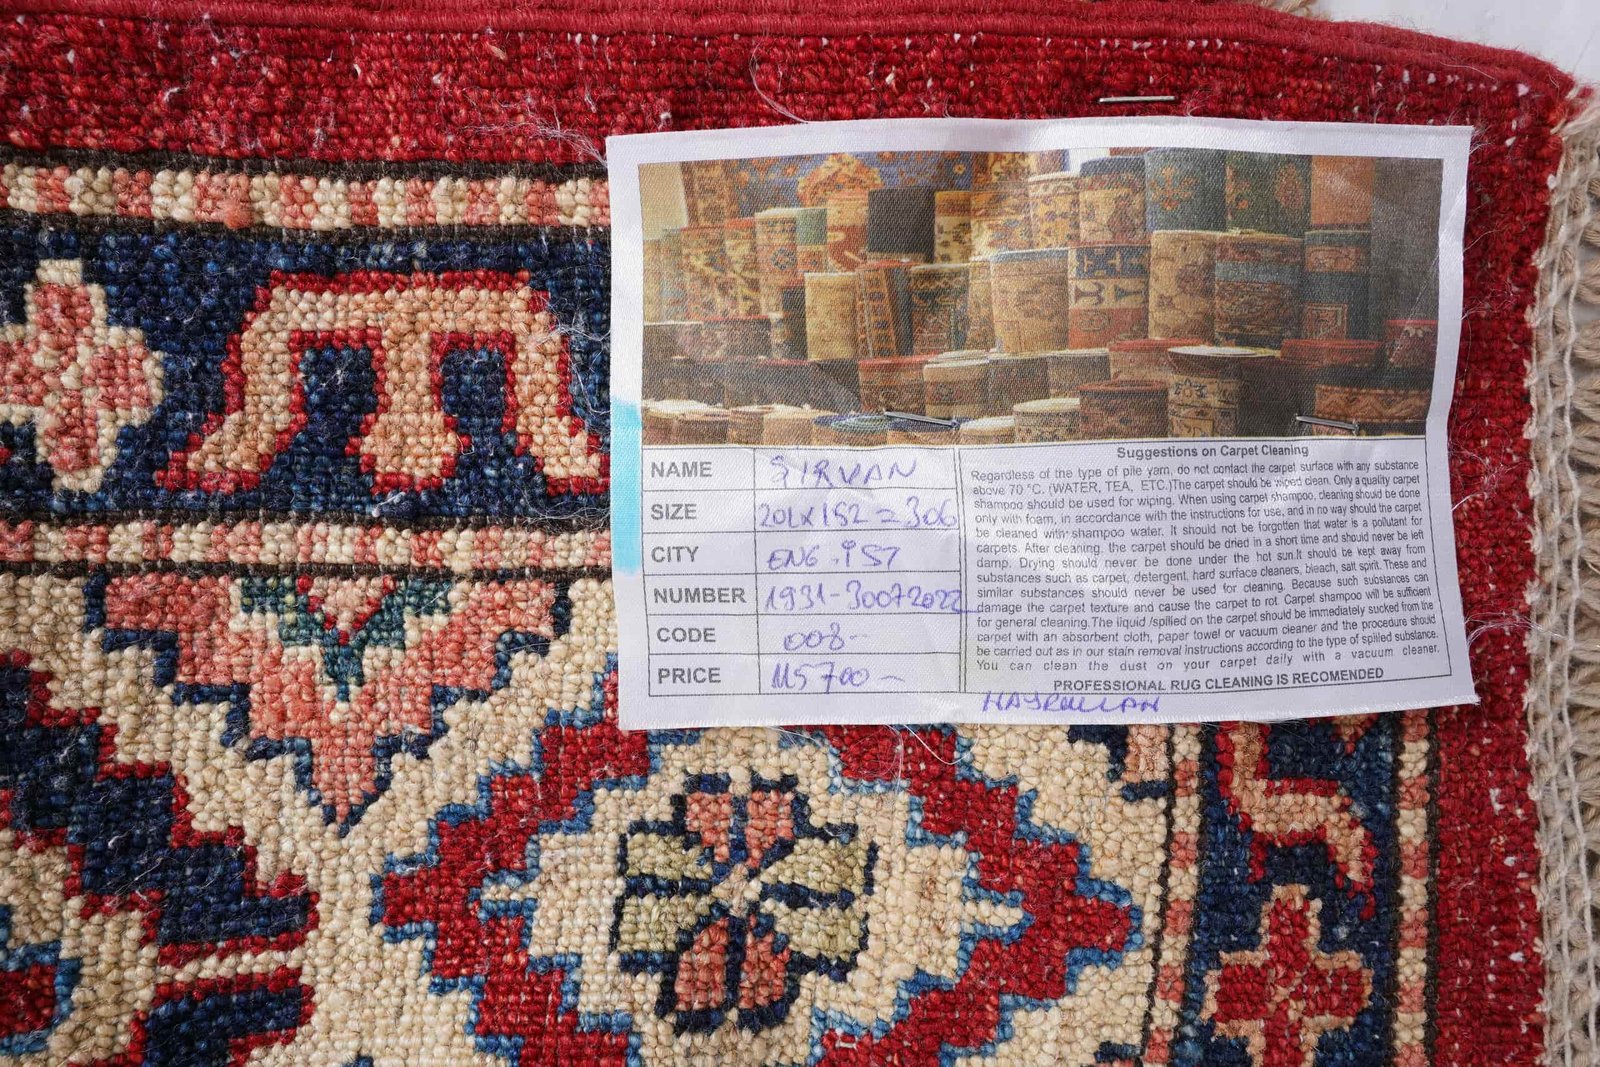 NAME ŞIRVAN
SIZE 201x152=306
CITY ENG.İST
NUMBER 1931-30072022
CODE 008-
PRICE 115700-
Suggestions on Carpet Cleaning
Regardless of the type of pile yarn, do not contact the carpet surface with any substance
above 70 °C. (WATER, TEA, ETC.)The carpet should be wiped clean. Only a quality carpet
shampoo should be used for wiping. When using carpet shampoo, cleaning should be done
only with foam, in accordance with the instructions for use, and in no way should the carpet
be cleaned with shampoo water. It should not be forgotten that water is a pollutant for
carpets. After cleaning, the carpet should be dried in a short time and should never be left
damp. Drying should never be done under the hot sun.It should be kept away from
substances such as carpet, detergent, hard surface cleaners, bleach, salt spirit. These and
similar substances should never be used for cleaning. Because such substances can
damage the carpet texture and cause the carpet to rot. Carpet shampoo will be sufficient
for general cleaning.The liquid /spilled on the carpet should be immediately sucked from the
carpet with an absorbent cloth, paper towel or vacuum cleaner and the procedure should
be carried out as in our stain removal instructions according to the type of spilled substance.
You can clean the dust on your carpet daily with a vacuum cleaner.
PROFESSIONAL RUG CLEANING IS RECOMENDED
HAYRULLAH